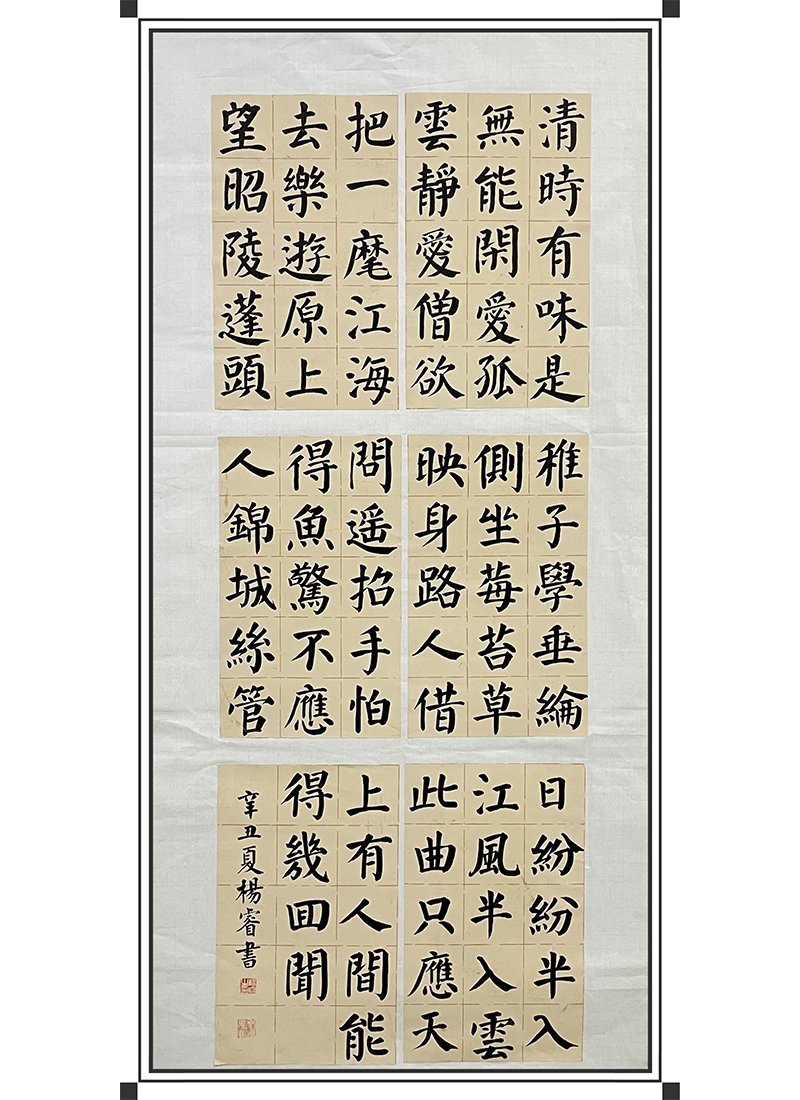 清時有味是
無能閑愛孤
雲靜愛僧欲
把一麾江海
去樂遊原上
望昭陵蓬頭
稚子學垂綸
側坐莓苔草
映身路人借
問遥招手怕
得魚驚不應
人錦城絲管
日紛紛半入
江風半入雲
此曲只應天
上有人間能
得幾囬聞
辛丑夏楊睿書